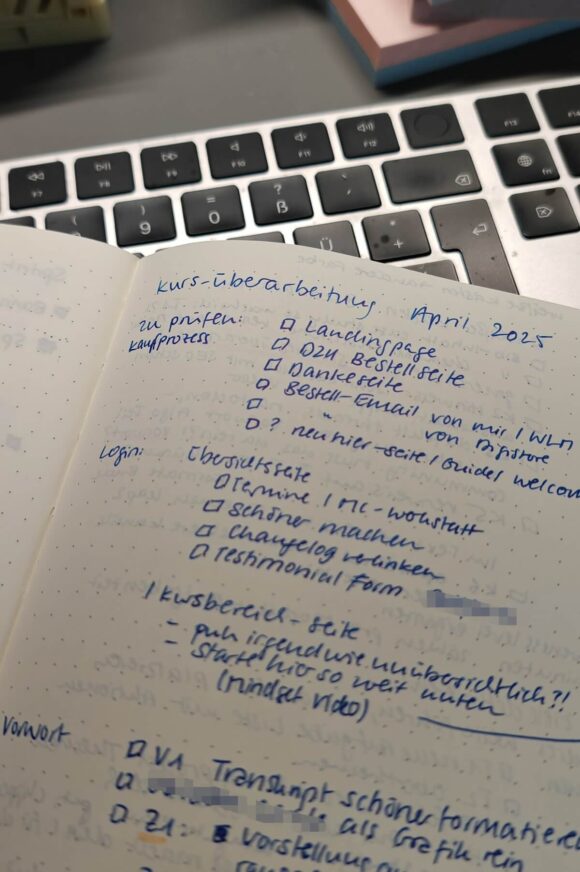 F7
F8
F9
F10
F11
F12
F13
)
9
=
0
?
ß
`
´
Ü
*
+
fn
kurs-überarbeitung April 2025
zu prüfen:
kaufprozess
□ Landingpage
□ D24 Bestellseite
□ Dankeseite
□ Bestell-Email von mir / WLM
□ " von Digistore
□ ? neu hier-seite / Guide / welcom
Login: Übersichtsseite
□ Termine / MC-
□ schöner machen
□ Changelog verlinken
□ Testimonial Form
/ kursbereich-seite
- puh irgendwie unübersichtlich?!
- Starte hier so weit unten
(mindset video)
Vorwort
□ V1 Transkript schöner formatieren
□ als Grafik rein
□ Z1: Vorstellung